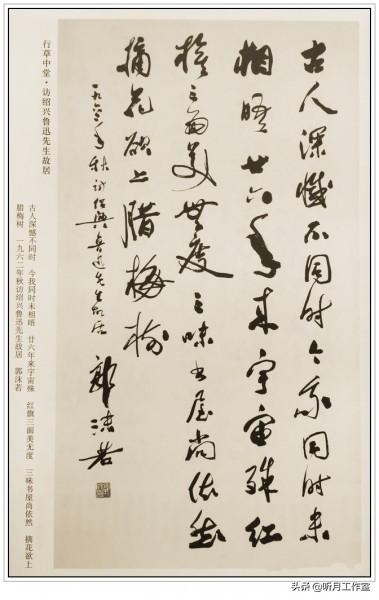 古人深憾不同时今我同时未
相晤廿六年来宇宙殊红
旗三面美無度三味书屋尚依然
摘花欲上腊梅樹
一九六二年秋访绍興鲁迅先生故居
郭沫若
行草中堂·访绍兴鲁迅先生故居
古人深憾不同时 今我同时未相晤 廿六年来宇宙殊 红旗三面美无度 三味书屋尚依然 摘花欲上
腊梅树 一九六二年秋访绍兴鲁迅先生故居 郭沫若
头条 @听月工作室